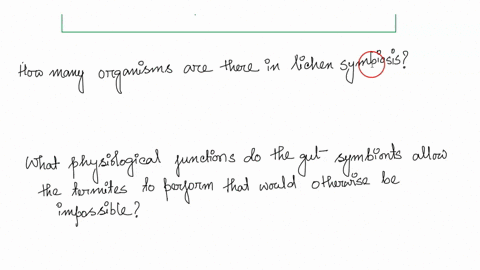 How many organisms are there in lichen symbiosis?
What physiological functions do the gut- symbionts allow
the termites to perform that would otherwise be
impossible?